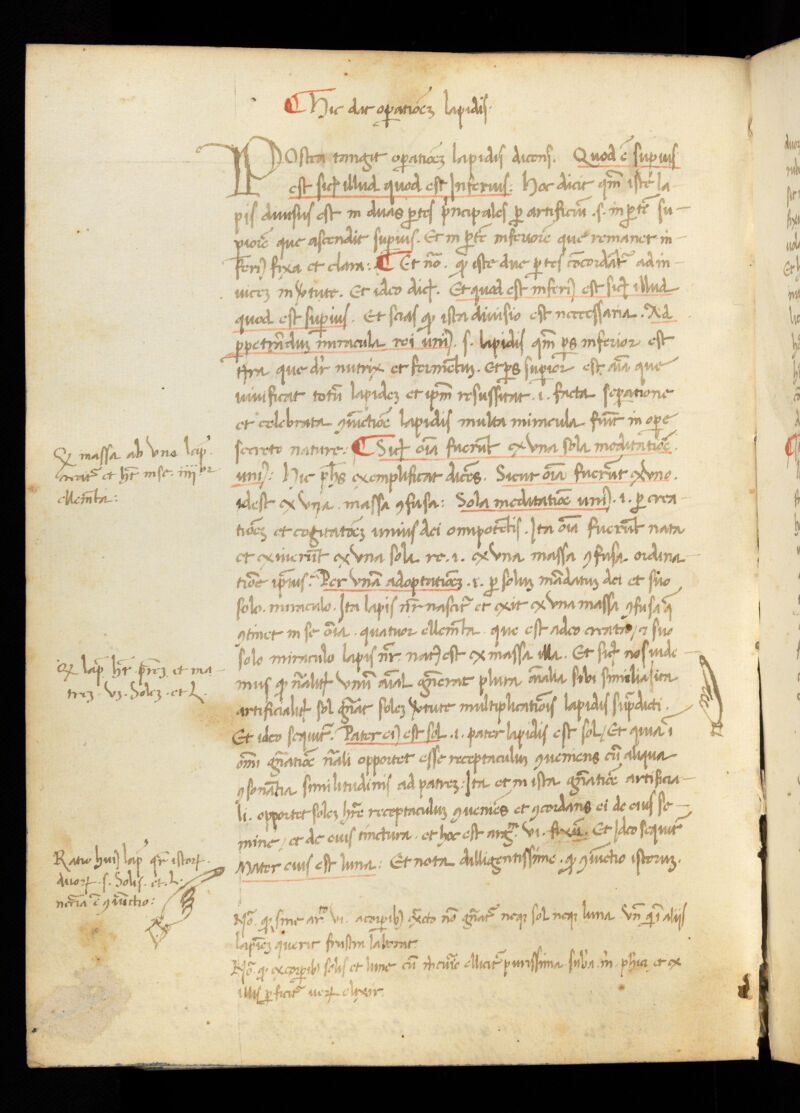 Hic dat oꝑatiõeʒ lapidis.
POstea tangit oꝑatiõeʒ lapidis dicens. Quod ē suꝑius
est sicꝉ illud quod est Inferius: Hoc dicit qm̃ iste la-
pis diuisus est in duas ꝑtes prncipales ꝑ artificiũ .s. in ꝑtẽ su-
ꝑiorẽ que ascendit suꝑius. Et in ꝑtẽ inferiorẽ que remanet in-
feriꝰ fixa et clara: Et nõ. ꝙ iste due ꝑtes cõcordãt ad in-
uiceʒ in ꝟtute. Et ideo dicꝉ. Et quod est inferiꝰ est sicꝉ illud
quod est suꝑius. Et scias ꝙ ista diuisio est neccessaria. Ad
ꝑpetrãduʒ miracula rei uniꝰ .s. lapidis qm̃ ꝑs inferior est
tr̃ra que dr̃ nutrix et formẽtuʒ. Et ꝑs suꝑior est aĩa que
uiuificat totũ lapideʒ et ipm̃ resussitat .i. facta seꝑatione
et celebrata ꝯiuctiõe lapidis multa miracula fiũt in oꝑe
secreto nature: Sicꝉ oĩa fuerũt ex una sola meditatiõe
uniꝰ: Hic phs exemplificat dicẽs. Sicut oĩa fuerũt ex uno.
idest ex una . massa ꝯfusa: Sola meditatiõe uniꝰ .i. ꝑ crea
tiõeʒ et cogitatõeʒ unius dei omipotẽtis. Ita oĩa fuerũt nata
et exiuerũt ex una sola re .i. ex una massa ꝯfusa. ordina
tiõe ipsius: Per unã adoptatiõeʒ .i. ꝑ soluʒ mãdatuʒ dei et suo
solo. miraculo. Ita lapis nr̃ nascit̃ et exit ex una massa ꝯfusa q̃
ꝯtinet in se oĩa quatuor ellemẽta que est a deo creata, ⁊ suo
solo miraculo lapis nr̃ natꝰ est ex massa illa. Et sicꝉ nos uide
mus ꝙ nãlitꝉ unũ aĩal gñerat plura aĩalia sibi similia ita
artificialitꝉ sol gñat soleʒ ꝟtute multiplicatiõis lapidis supradicti.
Et ideo sequit̃. Pater eiꝰ est sol .i. pater lapidis est sol / Et quia ĩ
omi gñatiõe nãli opportet esse receptaculuʒ ꝯueniens cũ aliqua
ꝯsonãtia similitudinis ad patreʒ. Ita et in ista gñatiõe artificia-
li. opportet soleʒ hr̃e receptaculuʒ ꝯueniẽs et ꝯcordans ei de eius se-
mine, et de eius tinctura . et hoc est argꝰ. ui. fixũ. Et Ideo sequit̃
Mater eius est luna: Et nota dilligentissime. ꝙ ꝯiuctio istoruʒ.
Nõ. ꝙ sine arꝰ ui. a corꝑibꝰ ꝑfecto nõ gñat̃ neqʒ sol neqʒ luna Vñ q̃ ĩ aliis
lapideʒ querit frustra laborat
Nõ. ꝙ ex corꝑibꝰ solis et lune cũ mcurio ellicit̃ purissima suba et ex
illis ꝑficit̃ ueruʒ elixir.
Qꝭ massa ab uno lapꝰ
creat̃ et hr̃ in se iiiior
ellemẽta:
Qꝭ lapꝰ hr̃ pr̃eʒ et ma-
treʒ . uʒ. Soleʒ . et L.
Ratio huiꝰ lapꝰ qr̃ istorꝫ
duorꝫ .s. Solis . et . L.
neccãria ẽ ꝯiuctio: